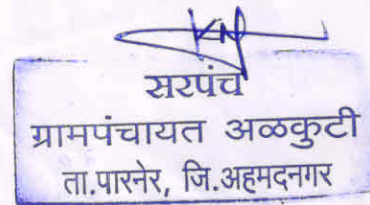 सरपंच
ग्रामपंचायत अळकुटी
ता.पारनेर, जि.अहमदनगर